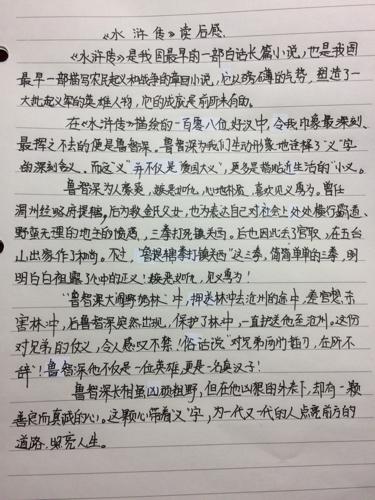 《水浒传》读后感.
《水浒传》是我国最早的一部白话长篇小说,也是我国
最早一部描写农民起义和战争的章回小说,它以磅礴的气势,塑造了一
大批起义军的英雄人物,它的成就是前所未有的.
在《水浒传》描绘的一百零八位好汉中,令我印象最深刻、
最挥之不去的便是鲁智深。鲁智深为我们生动形象地诠释了"义"字
的深刻含义、而这"义"并不仅是"爱国大义",更多是指贴近生活的"小义。
鲁智深为人豪爽,嫉恶如仇,心地朴实,喜欢见义勇为。曾任
渭州经略府提辖,后为救金氏父女,也为表达自己对社会上处处横行霸道、
野蛮无理的地主的愤慨、三拳打死镇关西。后也因此丢了官职,在五台
山出家作了和尚。不过,"鲁提辖拳打镇关西"这三拳,简简单单的三拳,明
明白白袒露了心中的正义!嫉恶如仇,见义勇为!
"鲁智深大闹野猪林"中,押送林冲去沧州的途中,差官想杀
害林冲,后鲁智深突然出现,保护了林冲,一直护送他至沧州。这份
对兄弟的仗义,令人感叹不禁!俗话说"对兄弟两肋插刀,在所不
辞"!鲁智深他不仅是一位英雄,更是一名真汉子!
鲁智深长相虽凶烦粗野,但在他凶狠的外表下,却有一颗
善良而真诚的心。这颗心带着"义"字,为一代又一代的人点亮前方的
道路.照亮人生。